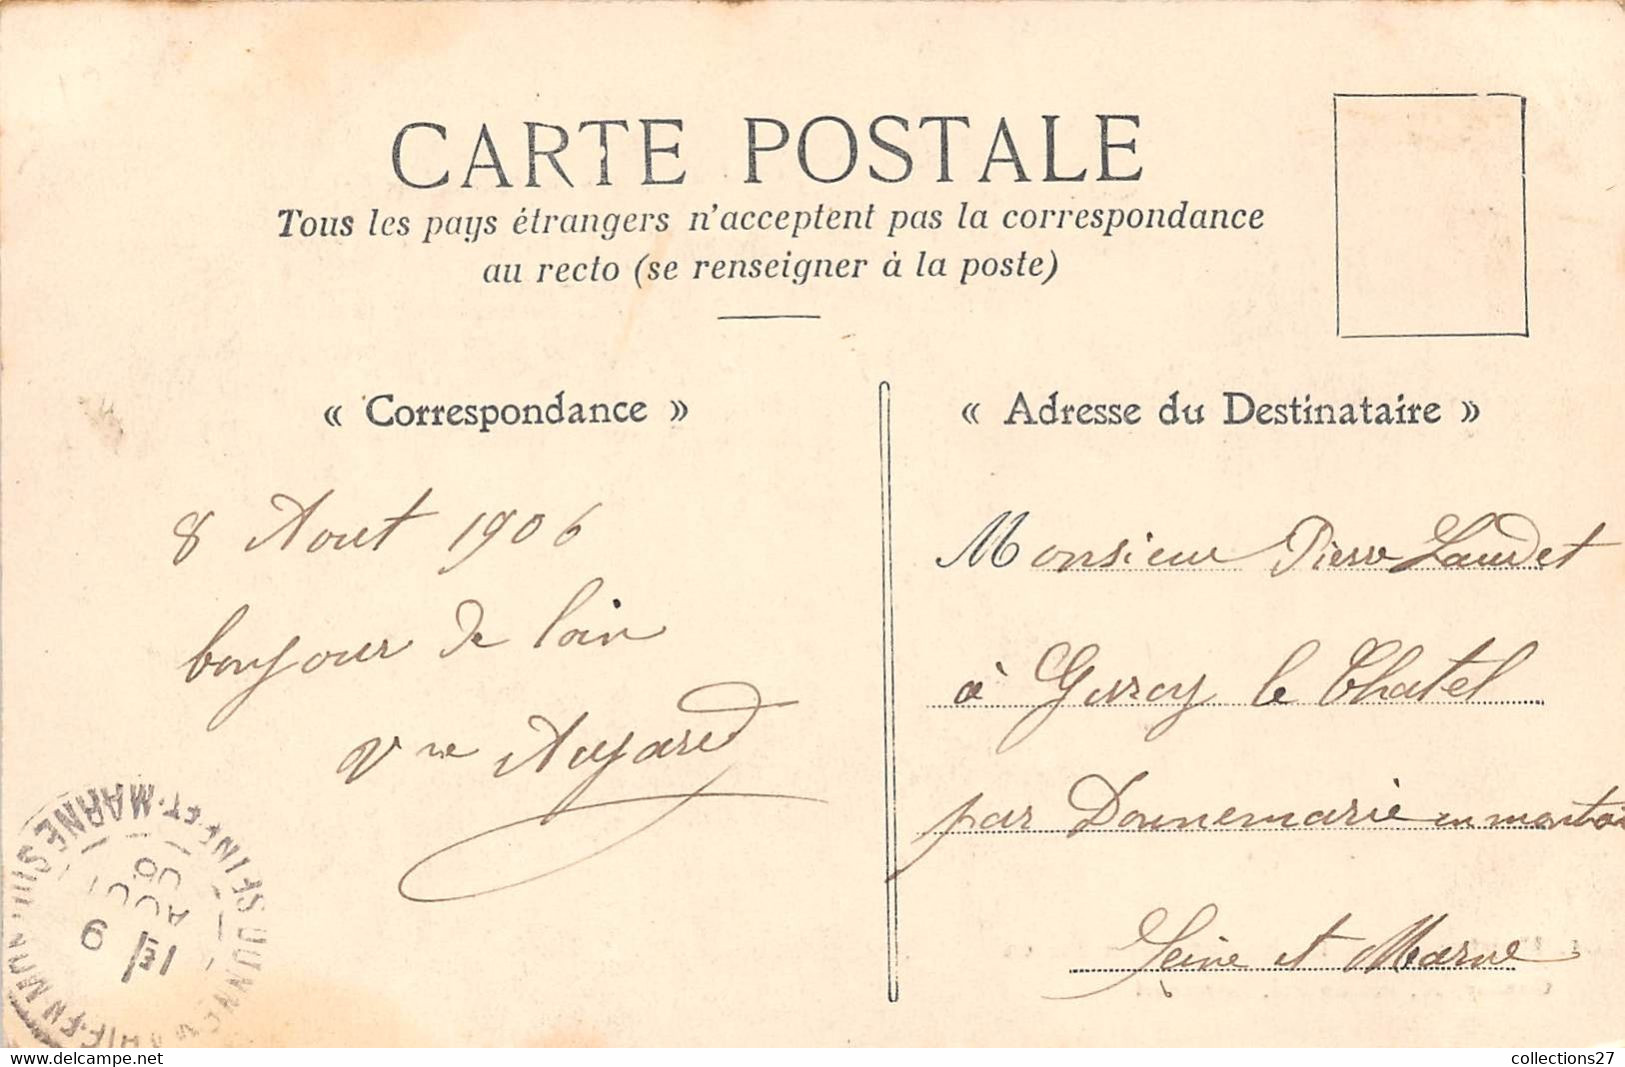 CARTE POSTALE
Tous les pays étrangers n'acceptent pas la correspondance
au recto (se renseigner à la poste)
« Correspondance »
8 Aout 1906
bonjour de loin
Vve
« Adresse du Destinataire »
Monsieur Pierre Laudet
à Gurcy le Chatel
par Donnemarie en montois
Seine et Marne
collections27